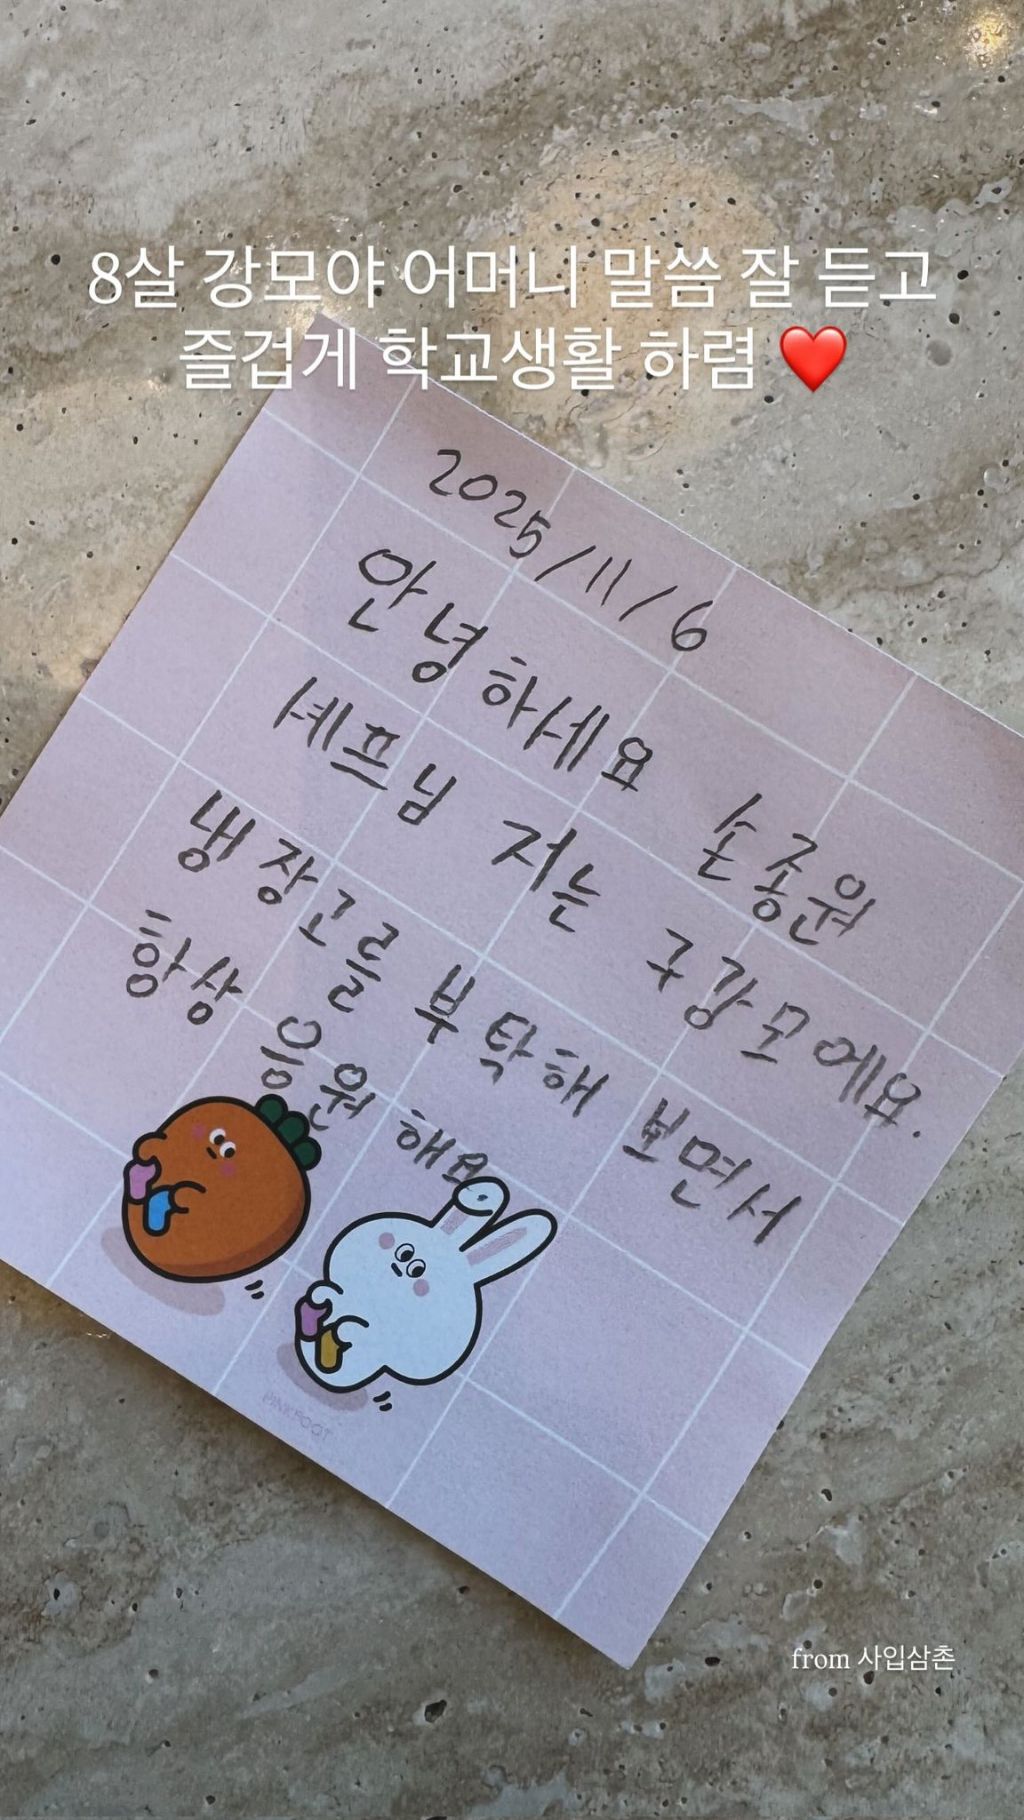 8살 강모야 어머니 말씀 잘 듣고
즐겁게 학교생활 하렴 ❤️
2025/11/6
안녕하세요 손종원
셰프님 저는 구강모에요.
냉장고를 부탁해 보면서
항상 응원해요
PINKFOOT
from 사입삼촌